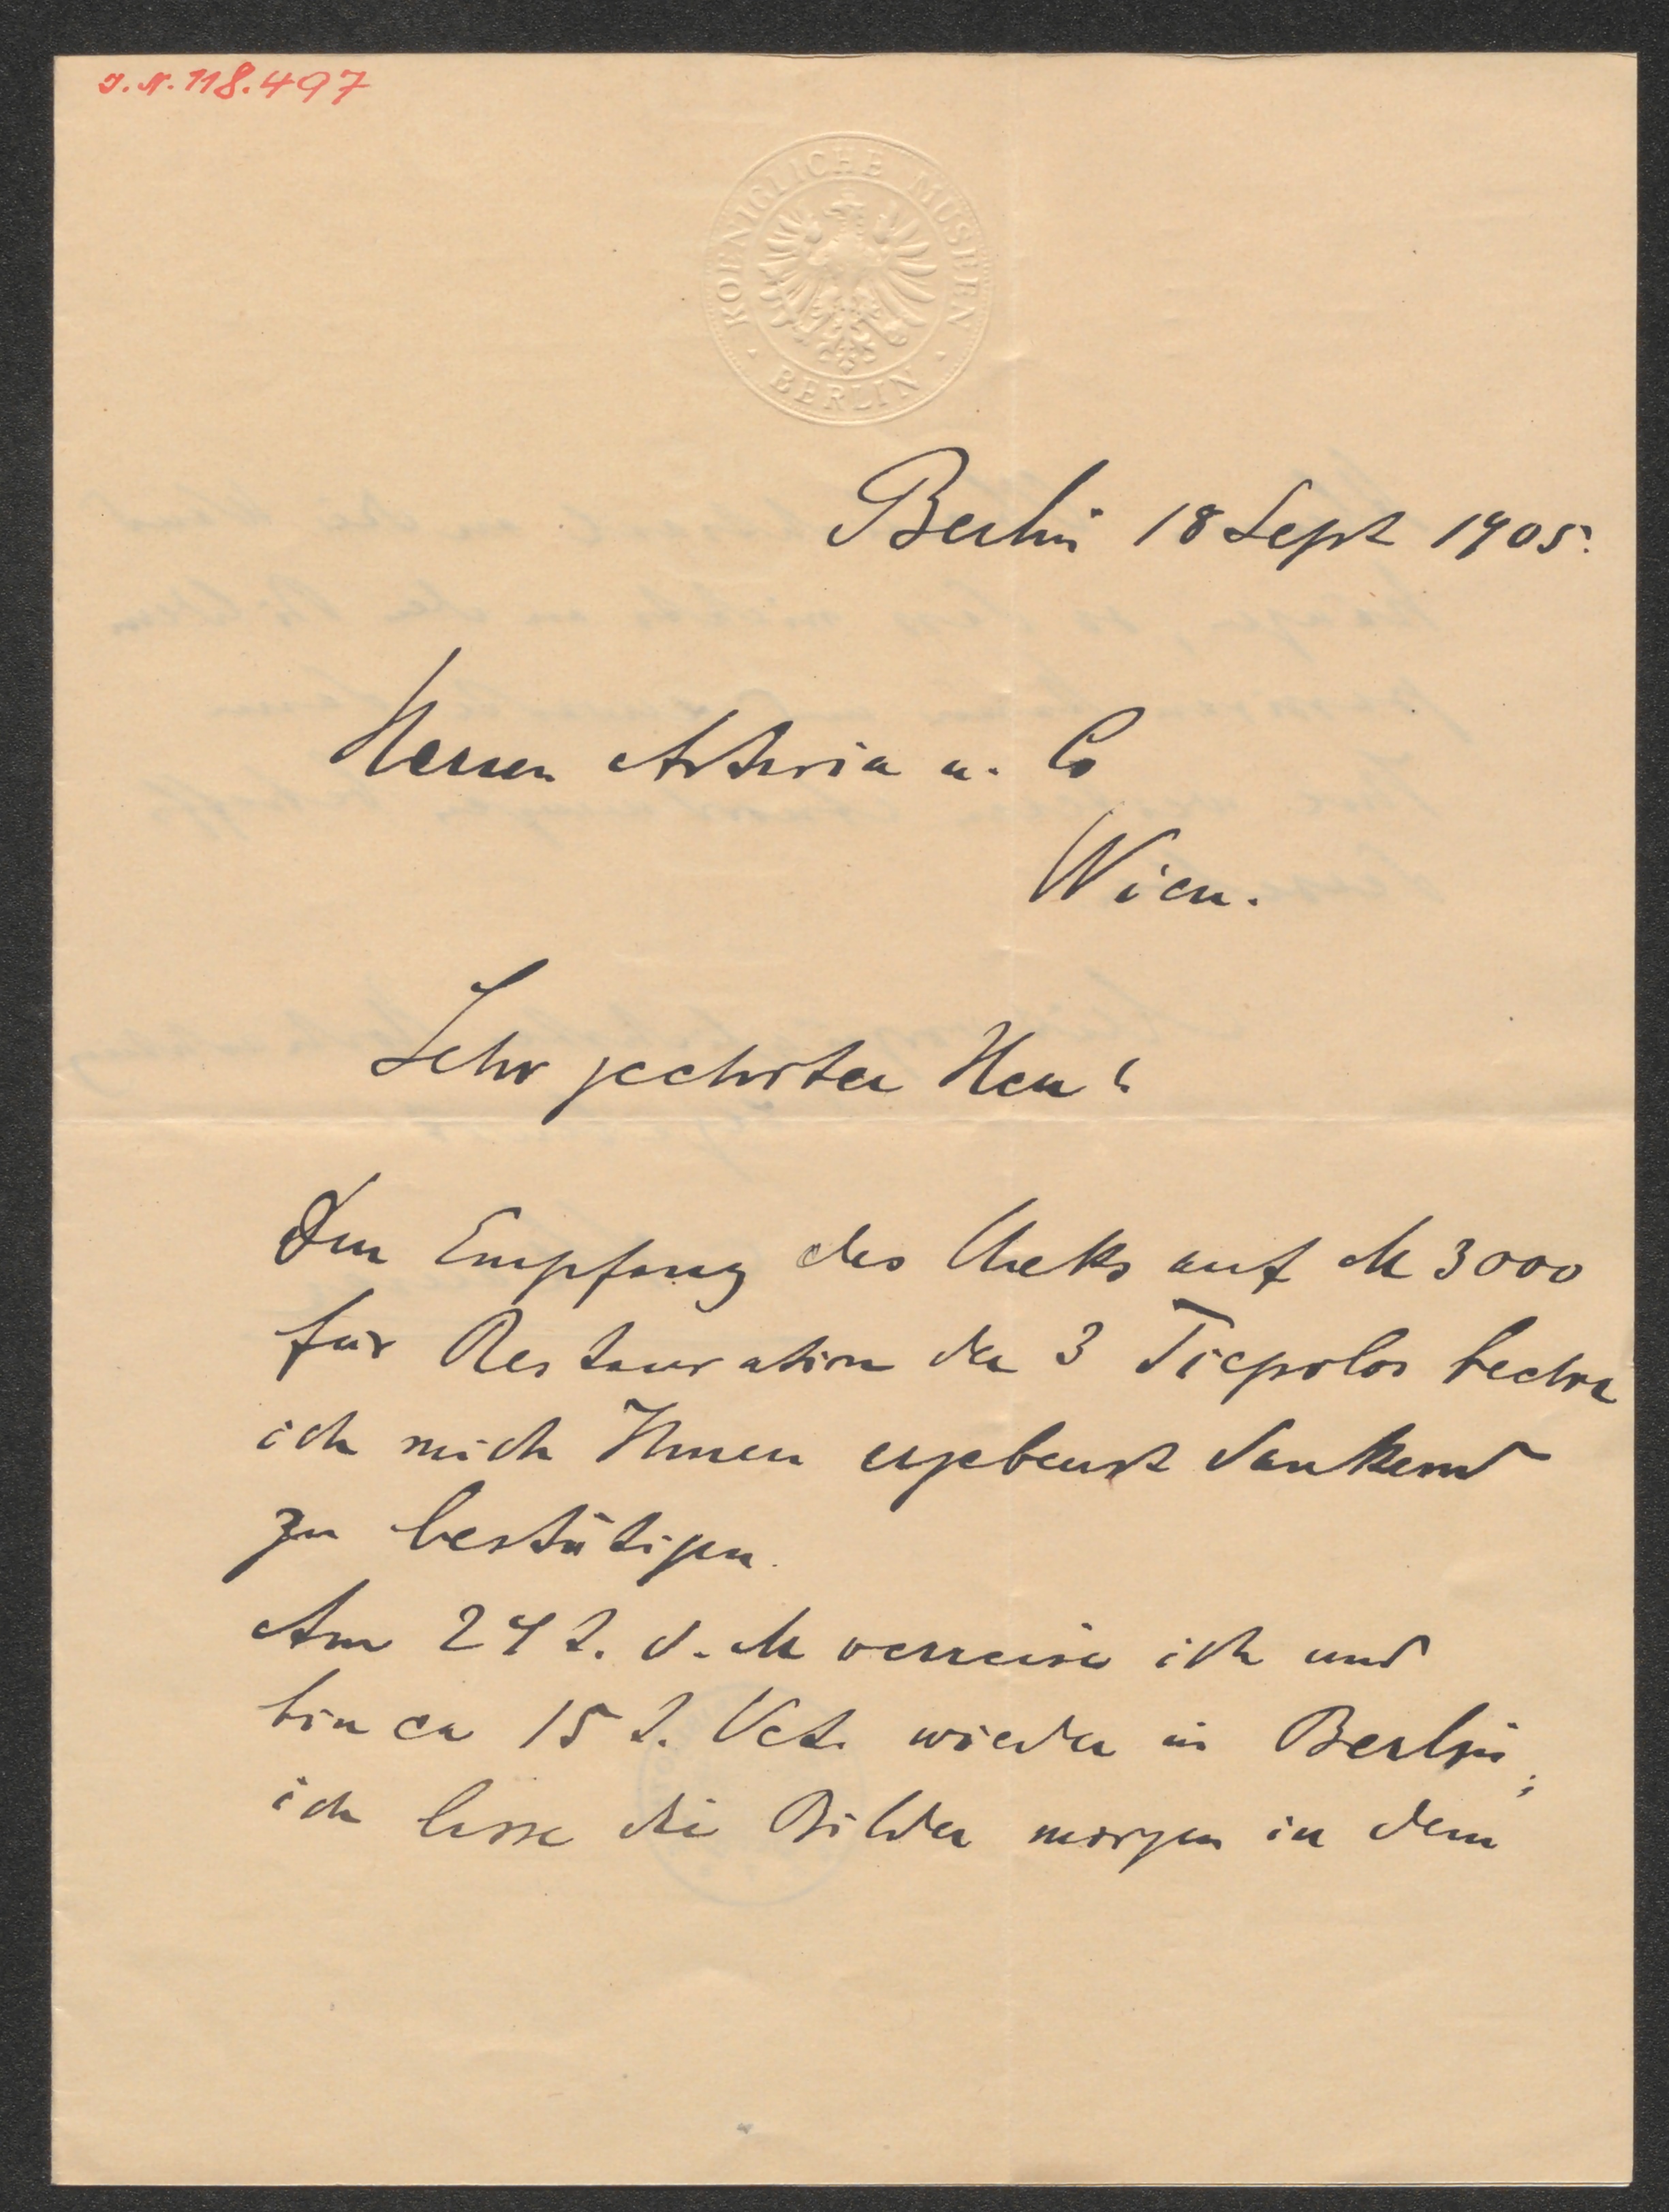 J.N. 118.497
KOENIGLICHE MUSEEN
BERLIN
Berlin 18 Sept 1905.
Herren Artaria u. Co
Wien.
Sehr geehrter Herr!
Den Empfang des Cheks auf M 3000
für Restauration der 3 Tiepolos beehre
ich mich Ihnen ergebenst dankend
zu bestätigen.
Am 24 t. d. M verreise ich und
bin ca 15 t. Oct. wieder in Berlin,
ich lasse die Bilder morgen in dem